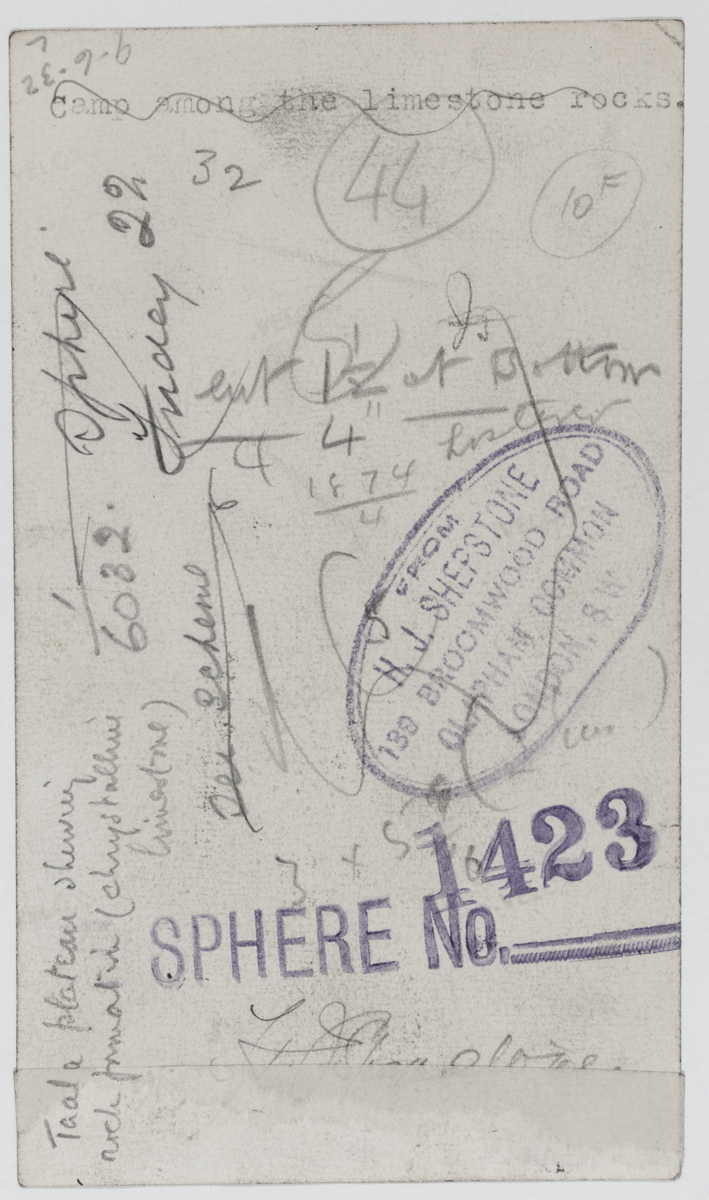 Camp among the limestone rocks.
32
44
10F
Sphere
Friday 22
cut 1½ at Bottom
4 4"
1874
4
6032.
Taala plateau shewing
rock formation (chrystalline
limestone)
FROM
H. J. SHEPSTONE
139 BROOMWOOD ROAD
CLAPHAM COMMON
LONDON, S.W
1423
SPHERE No.